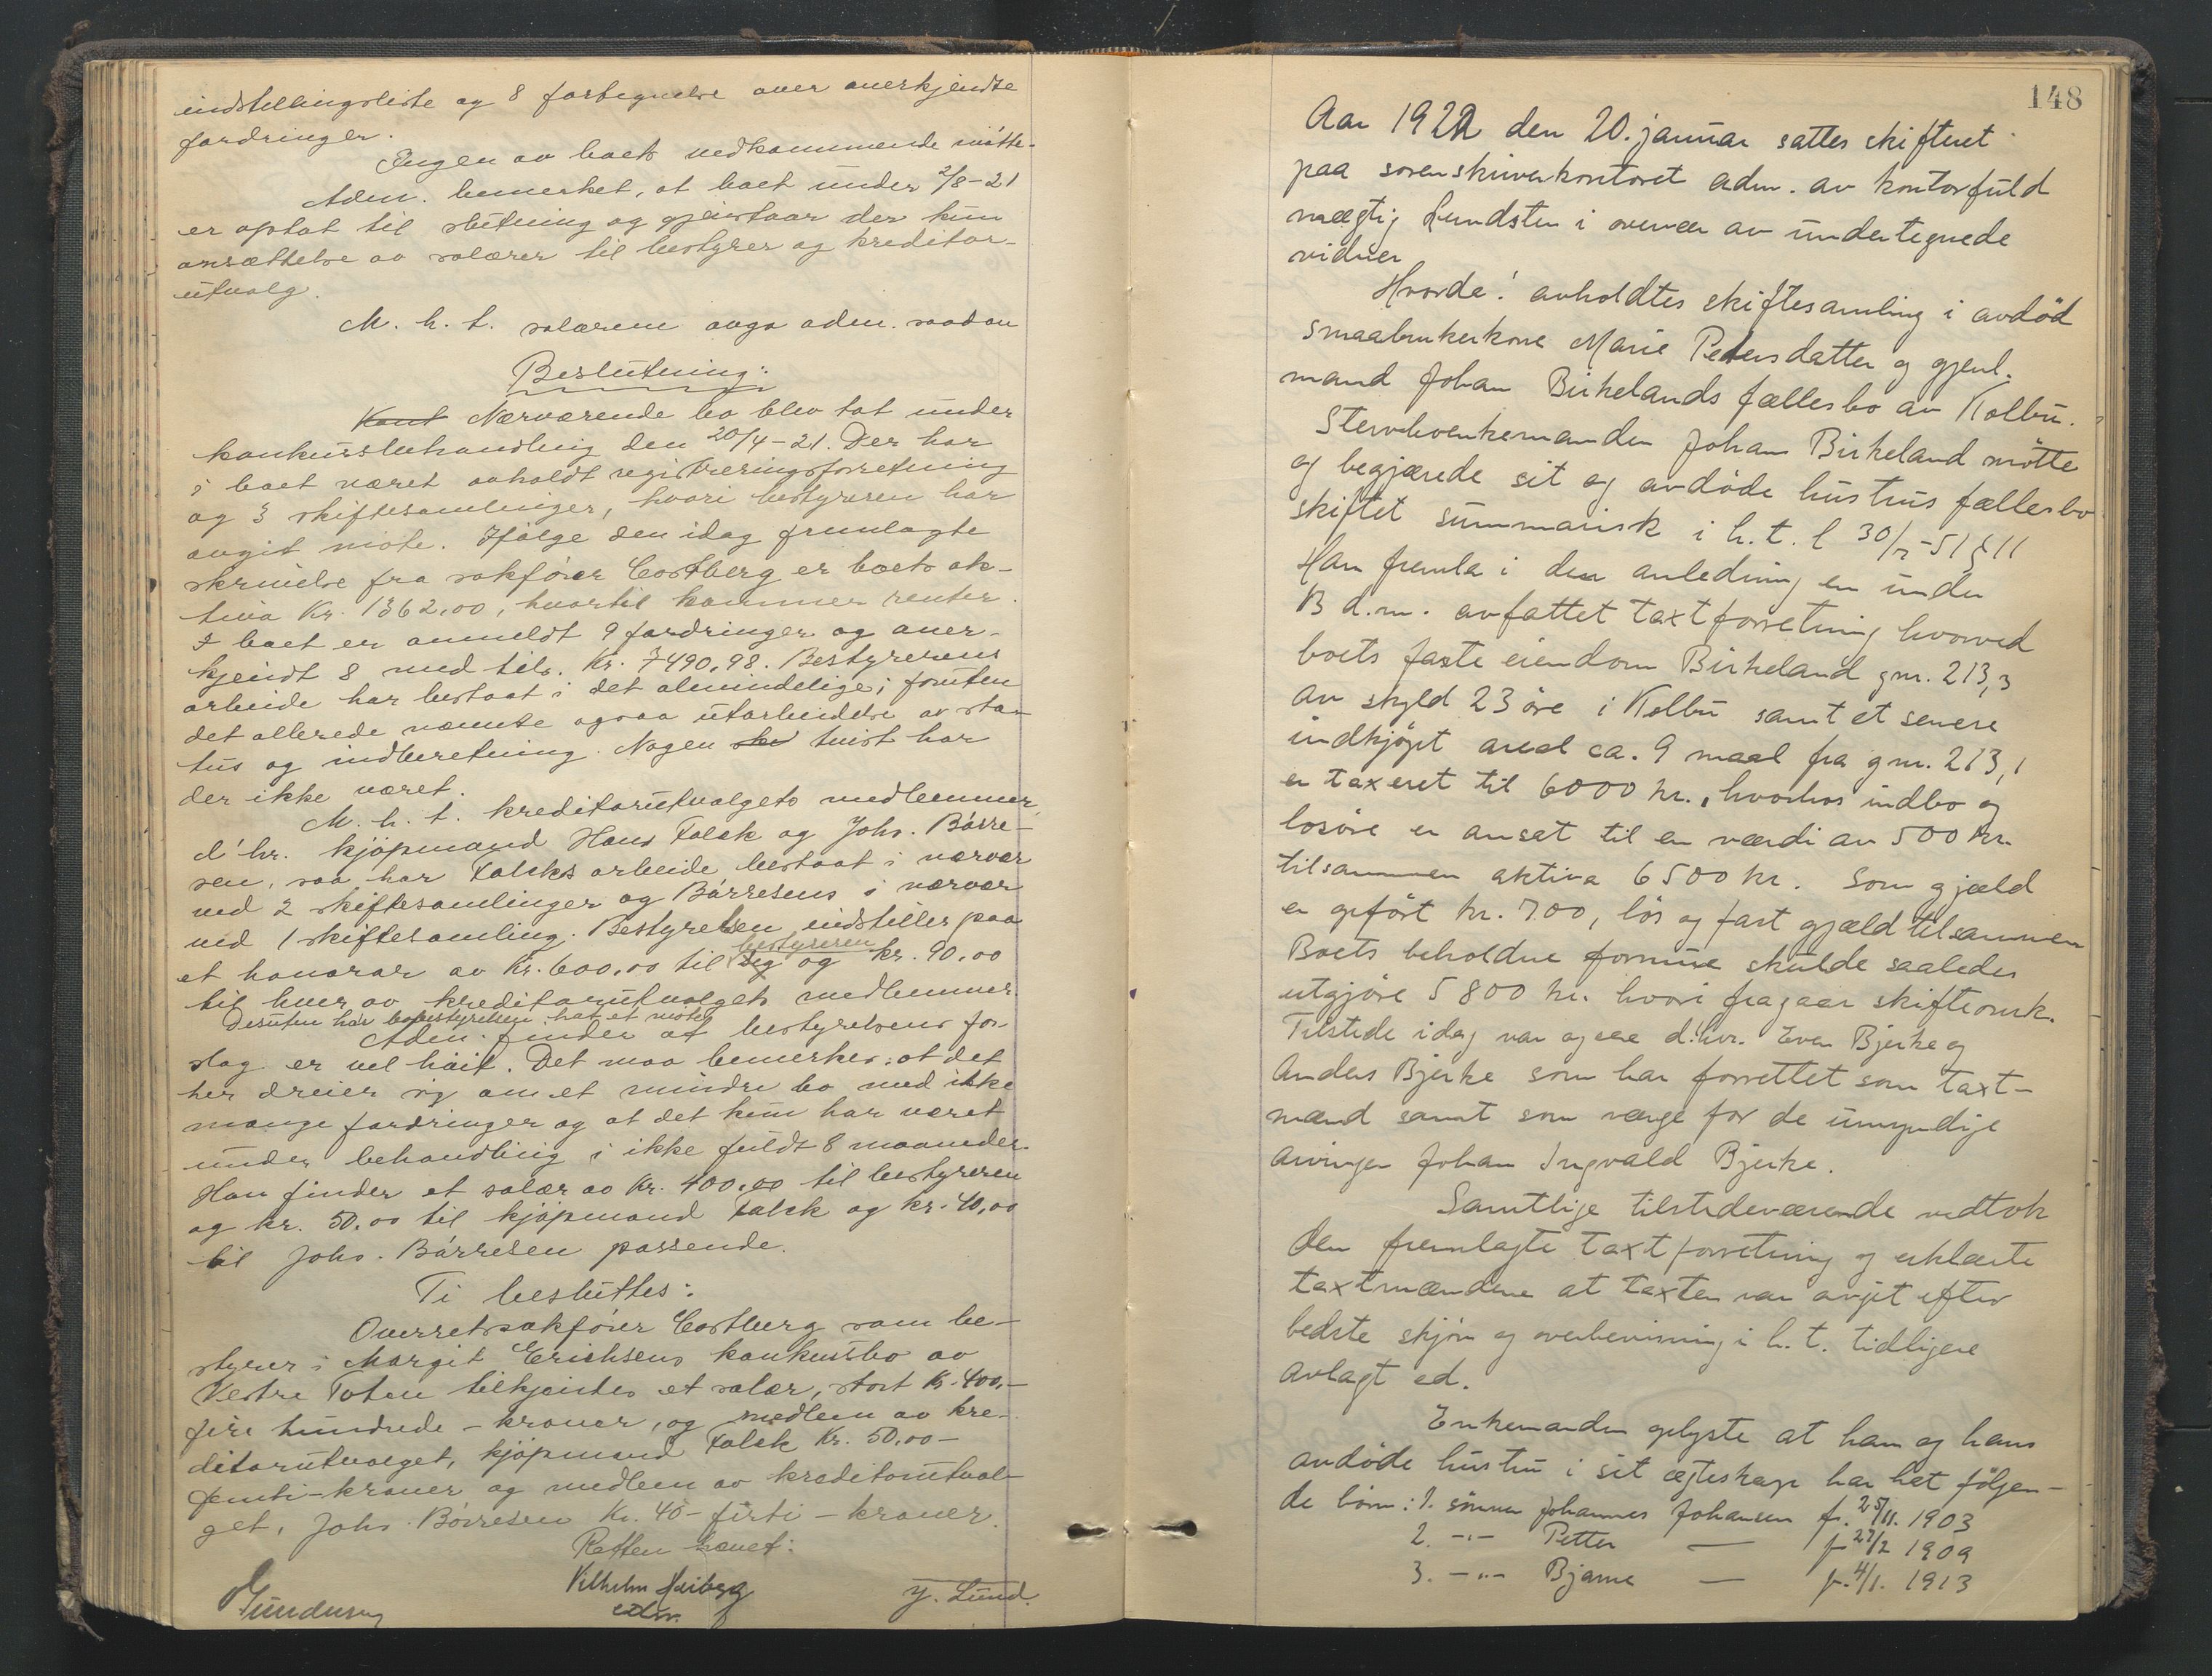 indstillingsliste og 8 fortegnelse over anerkjendte
fordringer.
Ingen av boets vedkommende møtte.
Adm. bemerket, at boet under 2/8-21
er optat til slutning og gjenstaar der kun
ansættelse av salærer til bestyrer og kreditor-
utvalg.
M. h. t. salærene avga adm. saadan
Beslutning:
Kont Nærværende bo blev tat under
konkursbehandling den 20/4-21. Der har
i boet været avholdt registreringsforretning
og 3 skiftesamlinger, hvori bestyreren har
avgit møte. Ifølge den idag fremlagte
skrivelse fra sakfører Costberg er boets ak-
tiva Kr. 1362,00, hvortil kommer renter.
I boet er anmeldt 9 fordringer og aner-
kjendt 8 med tils. Kr. 7490,98. Bestyrerens
arbeide har bestaat i det almindelige; foruten
det allerede nævnte ogsaa utarbeidelse av sta-
tus og indberetning. Nogen tvist har
der ikke været.
M. h. t. kreditorutvalgets medlemmer,
d'hr. kjøpmand Hans Falck og Johs. Børre-
sen, saa har Falcks arbeide bestaat i nærvær
ved 2 skiftesamlinger og Børresens i nærvær
ved 1 skiftesamling. Bestyrelsen indstiller paa
bestyreren
et honorar av Kr. 600,00 til seg og kr. 90,00
til hver av kreditorutvalgets medlemmer.
Desuten har bobestyrelsen hat et møte
Adm. finder at bestyrelsens for-
slag er vel høit. Det maa bemerkes: at det
her dreier sig om et mindre bo med ikke
mange fordringer og at det kun har været
under behandling i ikke fuldt 8 maaneder.
Han finder et salær av Kr. 400,00 til bestyreren
og kr. 50,00 til kjøpmand Falck og kr. 40,00
til Johs. Børresen passende.
Ti besluttes:
Overretssakfører Costberg som be-
styrer i Margit Erichsens konkursbo av
Vestre Toten tilkjendes et salær, stort Kr. 400,-
fire hundrede - kroner, og medlem av kre-
ditorutvalget, kjøpmand Falck Kr. 50,00-
femti - kroner og medlem av kreditorutval-
get, Johs. Børresen Kr. 40 - firti - kroner.
Retten hævet:
Vilhelm Heiberg
edsv.
Y. Lund.
Gundersen
148
Aar 1922 den 20. januar sattes skifteret
paa sorenskriverkontoret adm. av kontorfuld
mægtig Lundsten i overvær av undertegnede
vidner
Hvorda: avholdtes skiftesamling i avdød
smaabrukerkone Marie Pedersdatter og gjenl.
mand Johan Birkelands fællesbo av Kolbu.
Stervboenkemanden Johan Birkeland møtte
og begjærede sit og avdøde hustrus fællesbo
skiftet summarisk i h. t. l 30/7-51 § 11
Han fremla i den anledning en under
13 d.m. avfattet taxtforretning hvorved
boets faste eiendom Birkeland gnr. 213,3
av skyld 23 øre i Kolbu samt et senere
indkjøpt areal ca. 9 maal fra gnr. 213,1
er taxeret til 6000 kr., hvorhos indbo og
løsøre er ansat til en værdi av 500 kr.
tilsammen aktiva 6500 kr. Som gjæld
er opført kr. 700, løs og fast gjæld tilsammen
Boets beholdne formue skulde saaledes
utgjøre 5800 kr. hvori fragaar skifteomk.
Tilstede idag var ogsaa d'hr. Even Bjerke og
Anders Bjerke som har forrettet som taxt-
mænd samt som værge for de umyndige
arvinger Johan Ingvald Bjerke.
Samtlige tilstedeværende vedtok
den fremlagte taxtforretning og erklærte
taxtmændene at taxten var avgit efter
bedste skjøn og overbevisning i h. t. tidligere
avlagt ed.
Enkemanden oplyste at han og hans
avdøde hustru i sit egteskap har hat følgen-
de børn: 1. sønnen Johannes Johansen f. 25/11. 1903
2. -"- Petter — f 27/2 1909
3. -"- Bjarne — f. 4/1. 1913